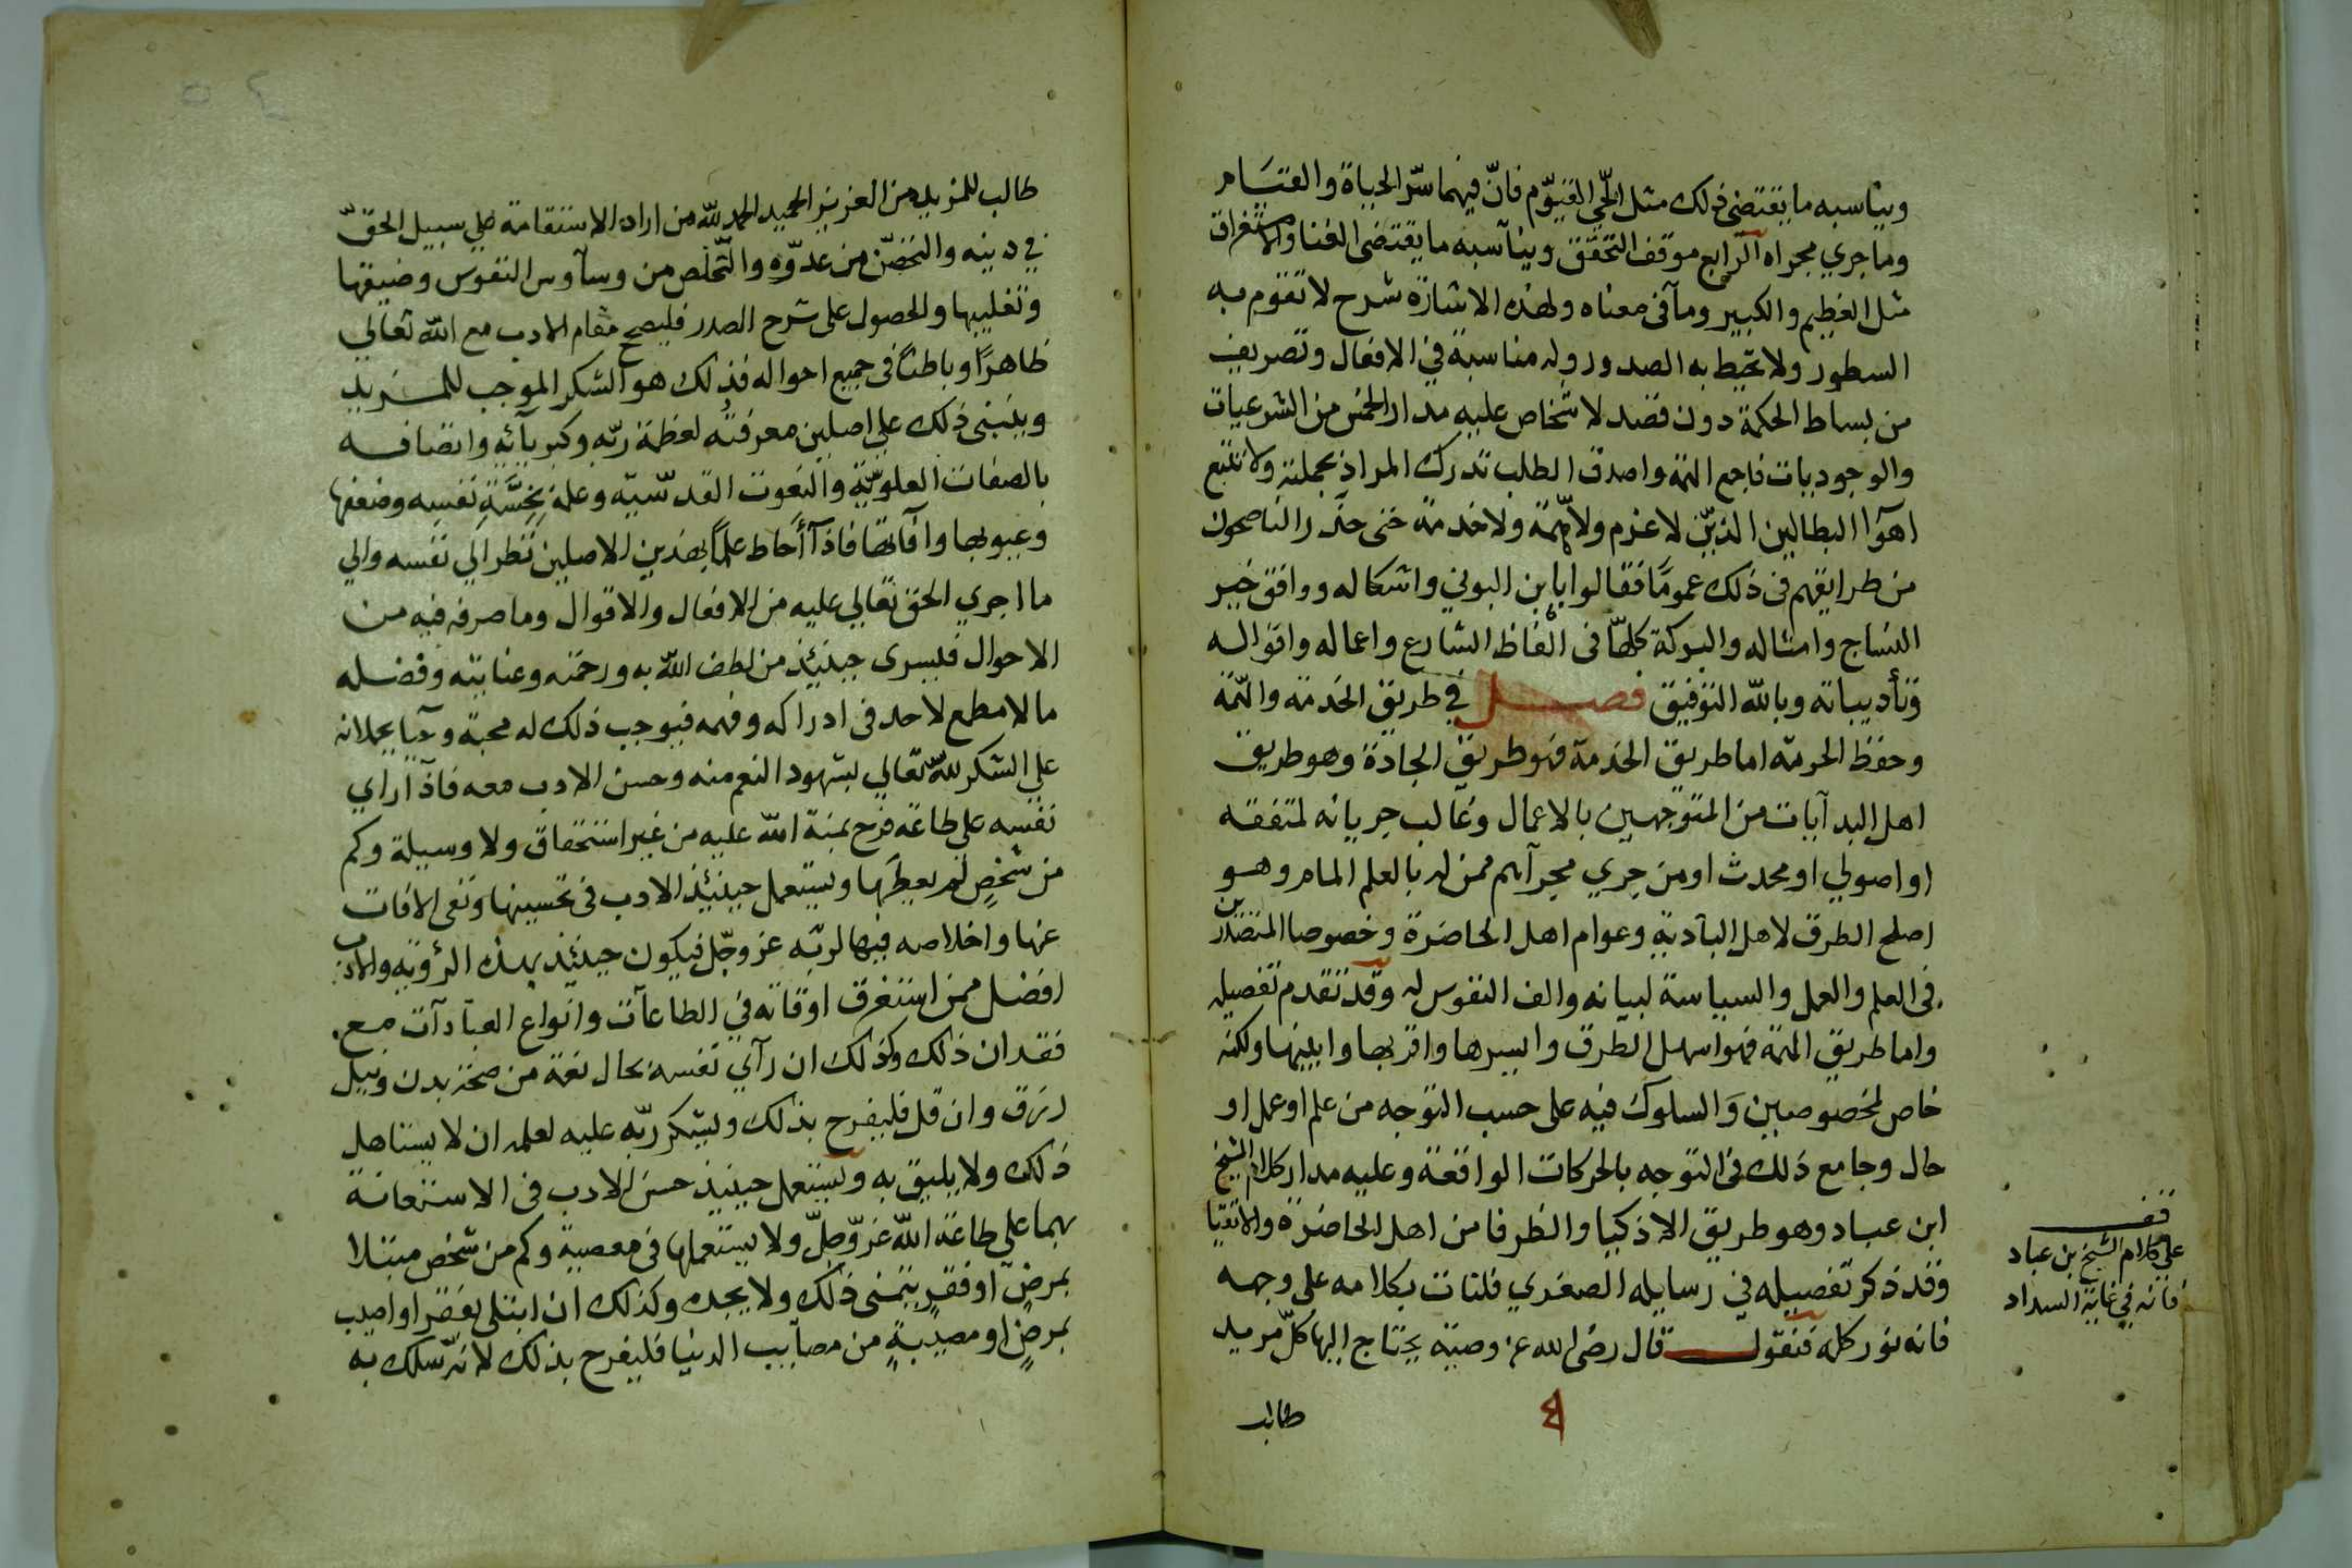 ويناسبه ما يقتضى ذلك مثل الحّي القيّوم فانّ فيهما سرّ الحياة والقيام
وما جري مجراه الرابع موقف التحقق ويناسبه ما يقتضى الفنا والاستغراق
مثل العظيم والكبير وما فى معناه ولهذه الاشارة شرح لا تقوم به
السطور ولا تحيط به الصدور وله مناسبة في الافعال وتصريف
من بساط الحكمة دون قصد لاشخاص عليه مدار الخمس من الشرعيات
والوجوديات فاجمع الهمة واصدق الطلب تدرك المراد بجملته ولا تتبع
اهوآ البطالين الذين لا عزم ولا همّة ولا خدمة حتى حذر الناصحون
من طرايقهم فى ذلك عمومًا فقالوا باين البوني واشكاله ووافق خير
النساج وامثاله والبركة كلهّا فى الفاظ الشارع واعماله واقواله
وتأديباته وبالله التوفيق فصل في طريق الخدمة والهمّة
وحفظ الحرمة اما طريق الخدمة فهو طريق الجادة وهو طريق
اهل البدآيات من المتوجهين بالاعمال وغالب جريانه لمتفقه
او اصولي او محدث او من جري مجرآهم ممن له بالعلم المام وهو
اصلح الطرق لاهل البآدية وعوام اهل الحاضرة وخصوصا المتصدرين
فى العلم والعمل والسياسة لبيانه والف النفوس له وقد تقدم تفصيله
واما طريق الهمة فهو اسهل الطرق وايسرها واقربها وابينها ولكنه
خاص لمخصوصين وَالسلوك فيه على حسب التوجه من علم او عمل او
حال وجامع ذلك فى التوجه بالحركات الواقعة وعليه مدار كلام الشيخ
ابن عباد وهو طريق الاذكيا والظرفا من اهل الحاضرة والاتقيا
وقد ذكر تفصيله في رسايله الصغري فلنات بكلامه على وجهه
فانه نور كله فنقول قال رضى الله عنه وصية يحتاج اليها كلّ مريد
طالب
قف
علي كلام الشيخ بن عباد
فانه في غاية السداد
طالب للمزيد من العزيز الحميد الحمد للّه من اراد الاستقامة على سبيل الحقّ
في دينه والتحصّن من عدوّه والتّخلّص من وسآوس النفوس وضيقها
وتغليبها والحصول على شرح الصدر فليصحح مقام الادب مع الله تعالي
ظاهرًا وباطنًا فى جميع احواله فذلك هو الشكر الموجب للمزيد
وينبنى ذلك علي اصلين معرفتُه لعظمة ربّه وكبريآئِه واتصافه
بالصفات العلويّة والنعوت القدسّيّه وعلمهِ بِخِسَّةِ نفسه وضعفها
وعيوبها وآفاتها فاذآ أحاط علمًا بهذين الاصلين نظر الي نفسه والي
ما اجري الحق تعالي عليه من الافعال والاقوال وما صرفه فيه من
الاحوال فليسرى حينئذ من لطف الله به ورحمته وعنايته وفضله
ما لا مطمع لاحد فى ادراكه وفهمه فيوجب ذلك له محبة وحيآ يحملانه
علي الشكر للّه تعالي بشهود النعم منه وحسن الادب معه فاذآ راي
نفسه على طاعة فرح بمنة الله عليه من غير استحقاق ولا وسيلة وكم
من شخصٍ لم يعطها ويستعمل حينئذ الادب فى تحسينها ونفى الافات
عنها واخلاصه فيها لربّه عز وجّل فيكون حينئذ بهذه الرؤية والادب
افضل ممن استغرق اوقاته في الطاعآت وانواع العبآدآت مع
فقدان ذلك وكذلك ان رآي نفسه بحال نعمة من صحة بدن ونيل
رزق وان قل فليفرح بذلك وليشكر ربّه عليه لعلمه ان لا يستاهل
ذلك ولا يليق به ويستعمل حينيذ حسن الادب فى الاستعانة
بهما على طاعة الله عزّ وجلّ ولا يستعملها فى معصية وكم من شخص مبتلا
بمرضٍ او فقرٍ يتمنى ذلك ولا يجده وكذلك ان ابتلى بفقر او اصيب
بمرضٍ او مصيبةٍ من مصآيب الدنيا فليفرح بذلك لانه سلك به